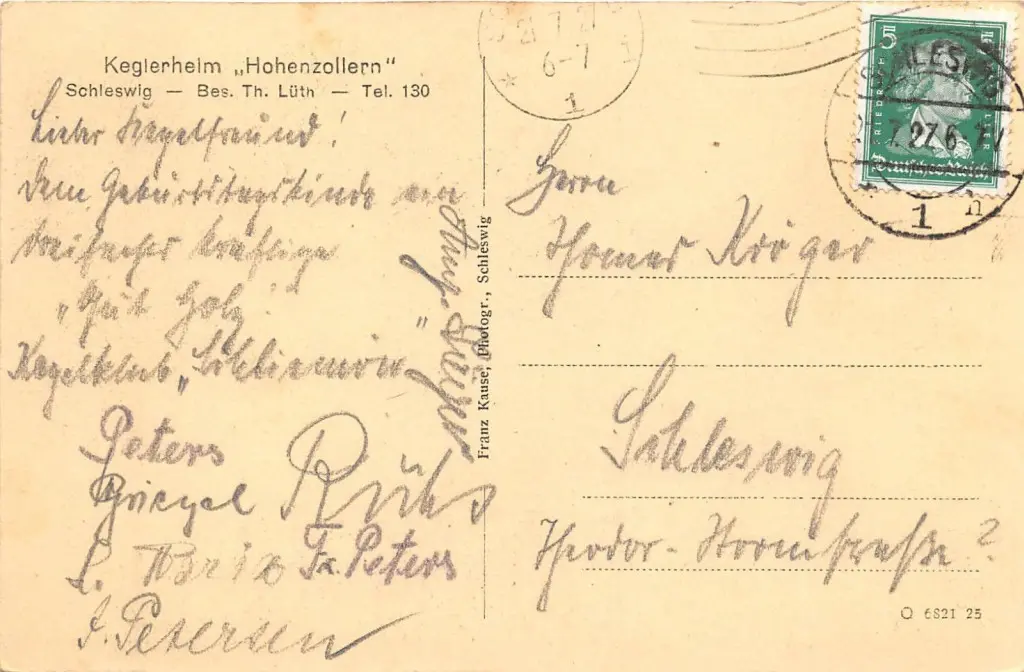 Keglerheim „Hohenzollern"
Schleswig — Bes. Th. Lüth — Tel. 130
Lieber Kegelfreund!
Dem Geburtstagskinde ein
dreifaches kräftige
„Gut Holz"
Kegelklub „
Peters
L. Brix Fr. Peters
J. Petersen
Franz Kause, Photogr., Schleswig
21.7.27
6-7
1
5
FRIEDRICH
Deutsches Reich
SCHLESWIG
7.27.6-7
1 n
Herrn
Thomas Kröger
Schleswig
Theodor-Stormstraße 2
Q 6821 25